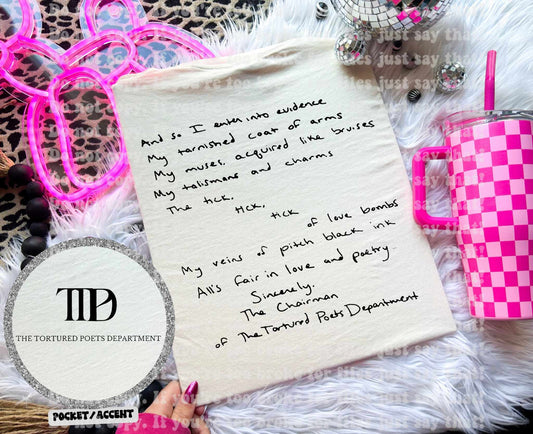 And so I enter into evidence
My tarnished coat of arms
My muses, acquired like bruises
My talismans and charms
The tick,
tick,
tick
of love bombs
My veins of pitch black ink
All's fair in love and poetry
Sincerely,
The Chairman
of The Tortured Poets Department
TTPD
THE TORTURED POETS DEPARTMENT
POCKET/ACCENT